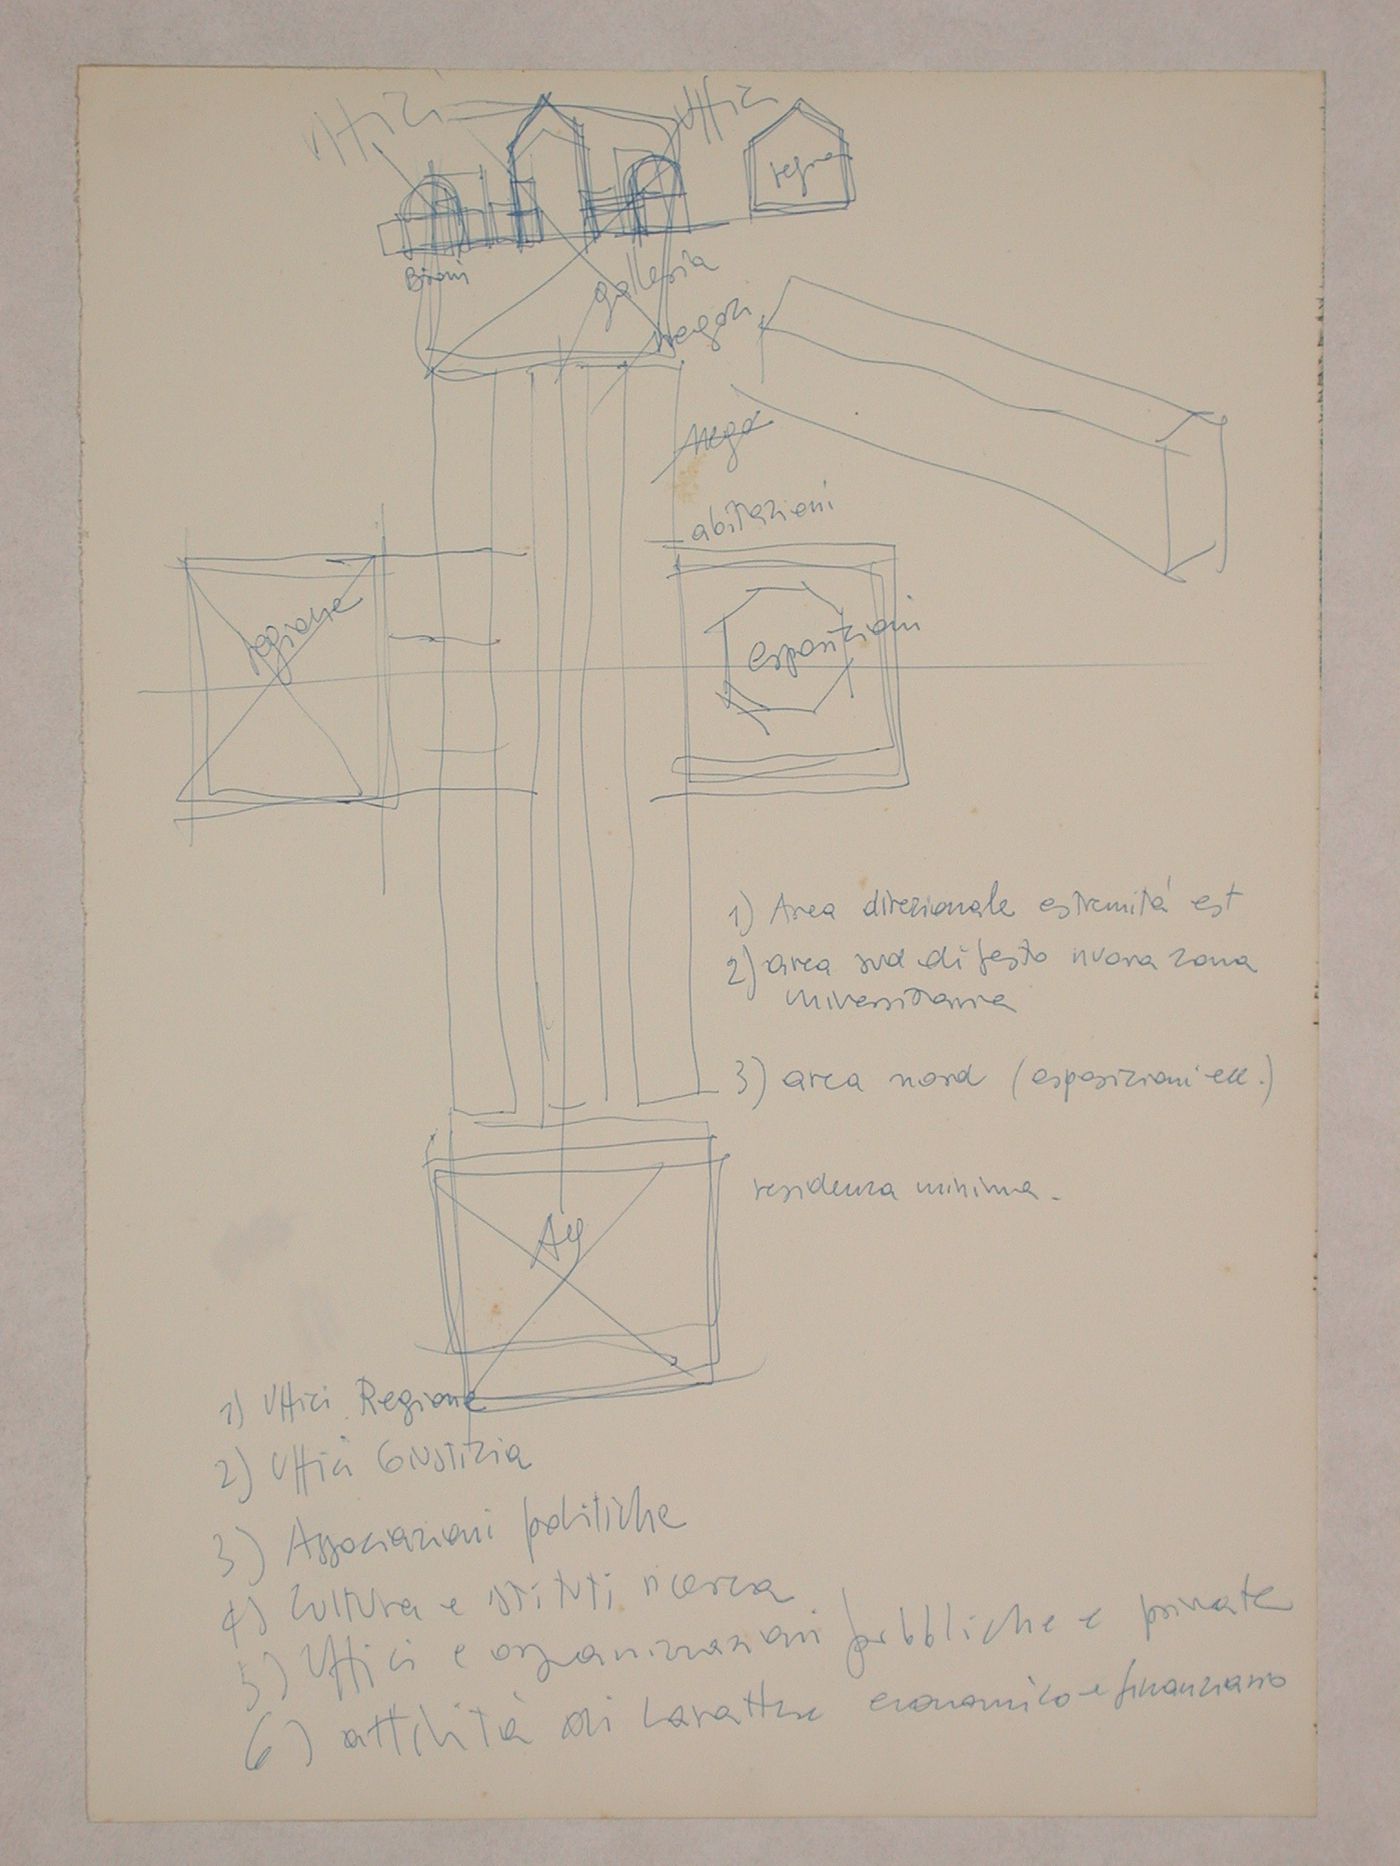 Uffici
Uffici
regione
Binari
galleria
negozi
nego
abitazioni
regione
esposizioni
1) Area direzionale estremità est
2) area sud di festo nuova zona
universitaria
3) area nord (esposizioni ecc.)
residenza minima.
1) Uffici Regione
2) Uffici Giustizia
3) Associazioni politiche
4) Cultura e istituti ricerca
5) Uffici e organizzazioni pubbliche e private
6) attività di carattere economico e finanziario